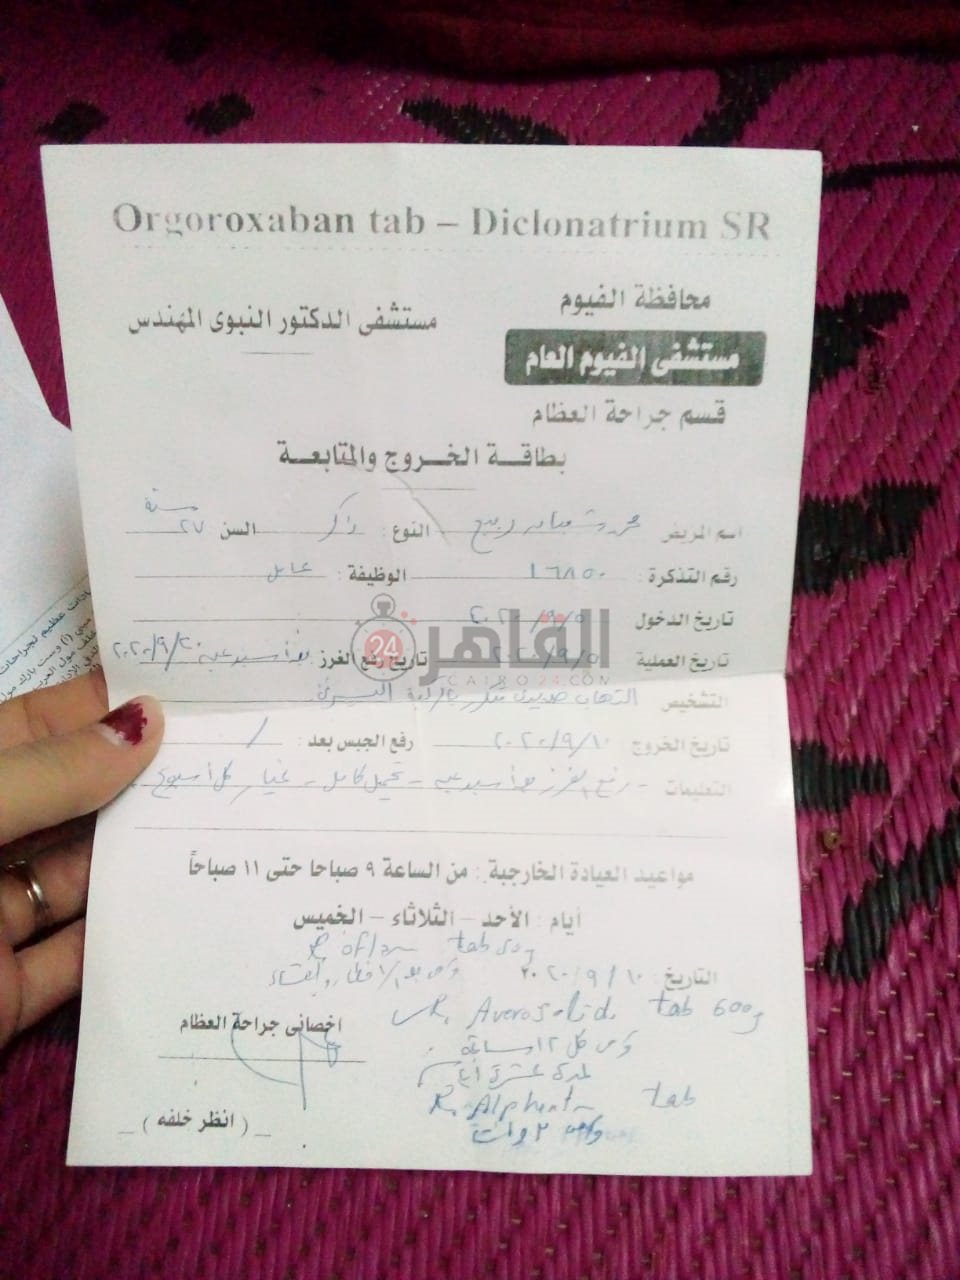 Orgoroxaban tab – Diclonatrium SR
محافظة الفيوم
مستشفى الدكتور النبوى المهندس
مستشفى الفيوم العام
قسم جراحة العظام
بطاقة الخروج والمتابعة
اسم المريض محمد شعبان ربيع النوع : ذكر السن ٢٧ سنة
رقم التذكرة : ١٦٨٥٠ الوظيفة : عامل
تاريخ الدخول ٢٠٢٠/٩/٥
تاريخ العملية ٢٠٢٠/٩/٥ تاريخ رفع الغرز بعد أسبوعين ٢٠٢٠/٩/٢٠
القاهرة 24
CAIRO 24.COM
التشخيص التهاب صديدى متكرر بالركبة اليسرى
تاريخ الخروج ٢٠٢٠/٩/١٠ رفع الجبس بعد : /
التعليمات - رفع الغرز بعد أسبوعين - تحميل كامل - غيار كل أسبوع
مواعيد العيادة الخارجية : من الساعة ٩ صباحا حتى ١١ صباحاً
أيام : الأحد – الثلاثاء – الخميس
R tab 50
التاريخ : ٢٠٢٠/٩/١٠ قرص بعد الافطار والعشاء
R. tab 600
اخصائى جراحة العظام
قرص كل ١٢ ساعة
لمدة عشرة أيام
R. tab
قرص ٣ مرات
_ ( انظر خلفه ) _